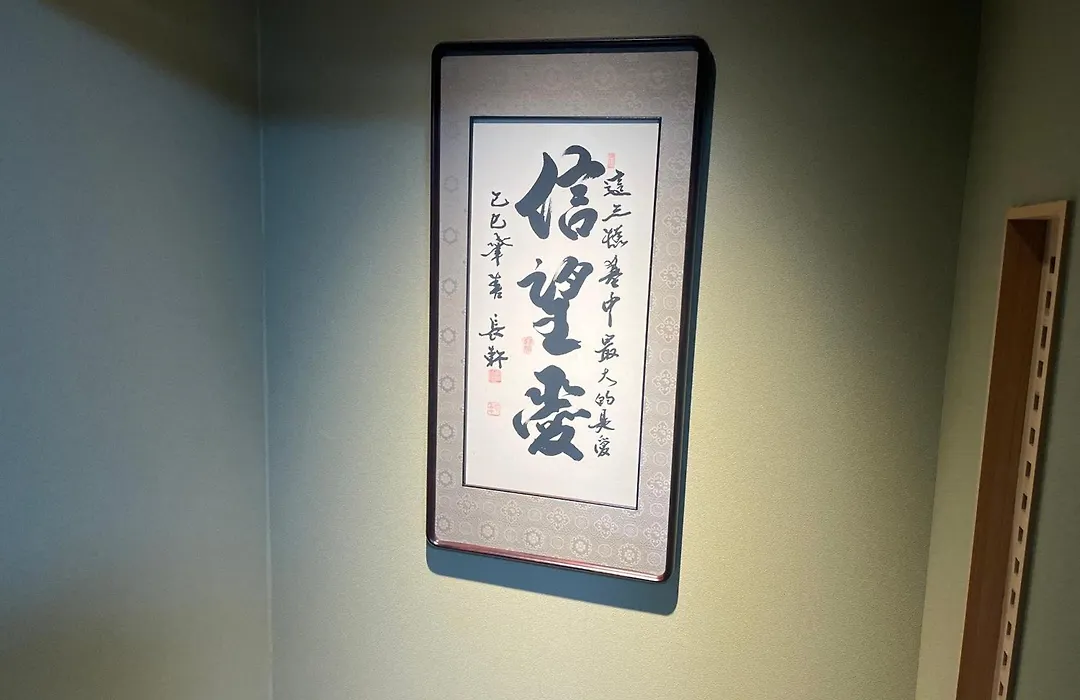 這三樣其中最大的是愛
信望愛
乙巳 長軒